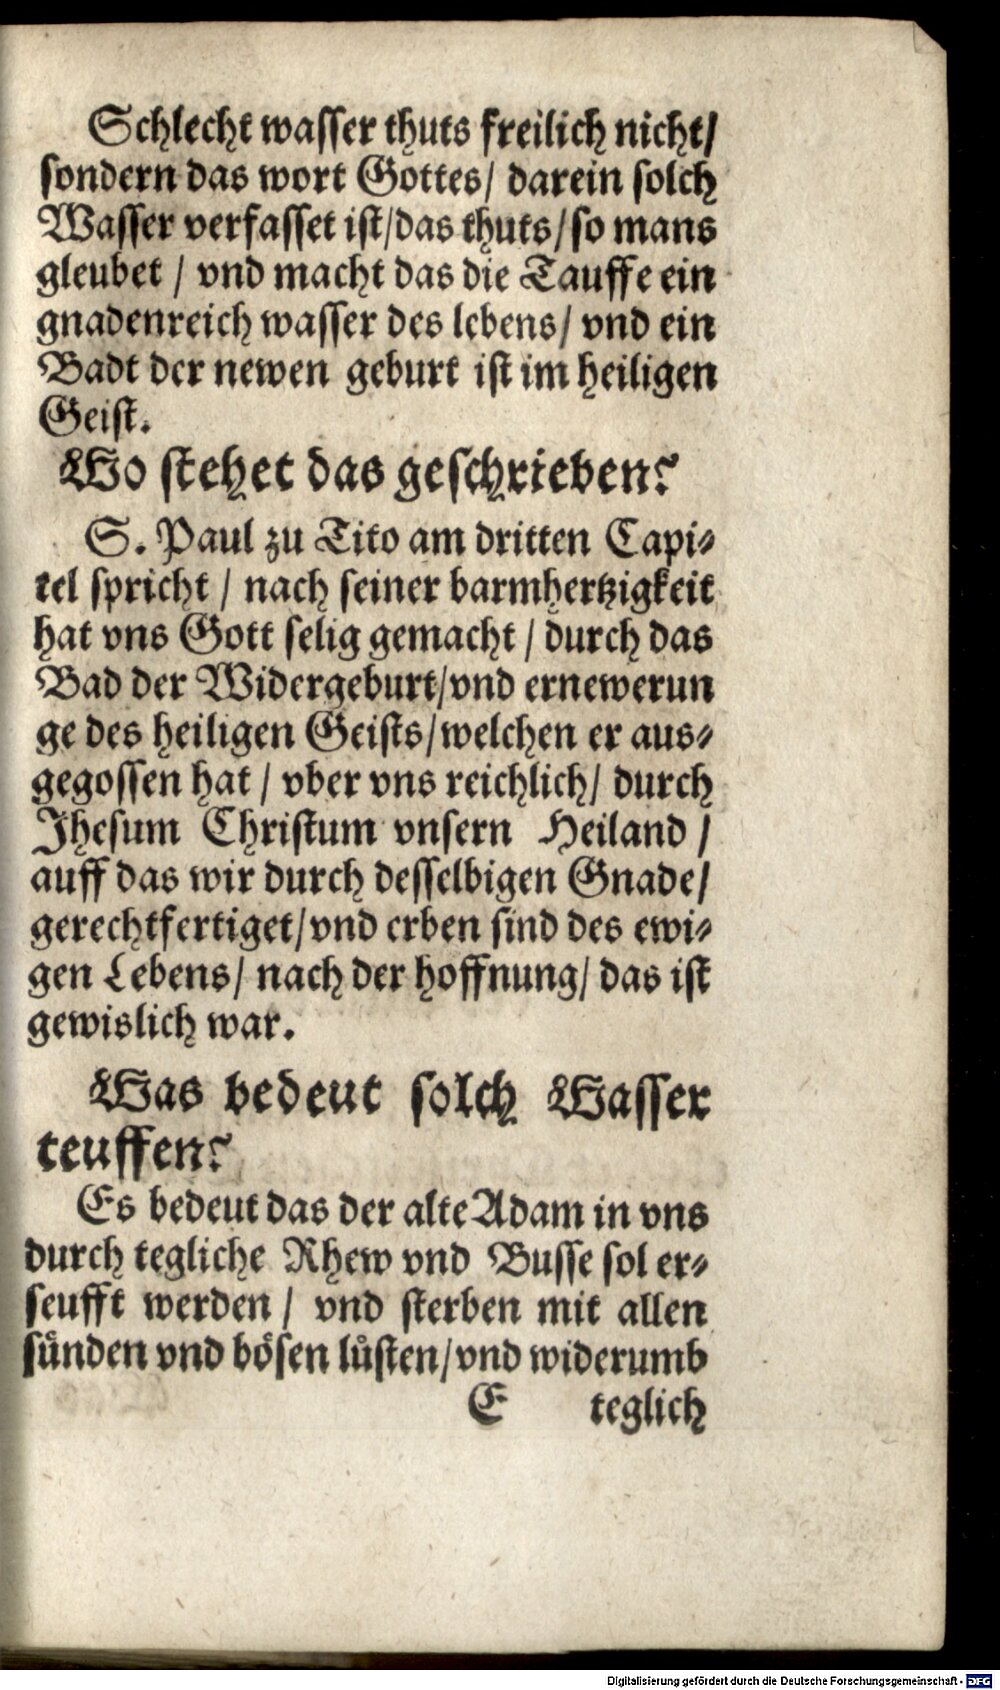 Schlecht wasser thuts freilich nicht/
sondern das wort Gottes/ darein solch
Wasser verfasset ist/das thuts/so mans
gleubet / vnd macht das die Tauffe ein
gnadenreich wasser des lebens/ vnd ein
Badt der newen geburt ist im heiligen
Geist.
Wo stehet das geschrieben?
S. Paul zu Tito am dritten Capi-
tel spricht / nach seiner barmhertzigkeit
hat vns Gott selig gemacht / durch das
Bad der Widergeburt/vnd ernewerun
ge des heiligen Geists/welchen er aus-
gegossen hat / vber vns reichlich/ durch
Jhesum Christum vnsern Heiland /
auff das wir durch desselbigen Gnade/
gerechtfertiget/vnd erben sind des ewi-
gen Lebens/ nach der hoffnung/ das ist
gewislich war.
Was bedeut solch Wasser
teuffen?
Es bedeut das der alte Adam in vns
durch tegliche Rhew vnd Busse sol er-
seufft werden / vnd sterben mit allen
sünden vnd bösen lüsten/vnd widerumb
E teglich
Digitalisierung gefördert durch die Deutsche Forschungsgemeinschaft - DFG